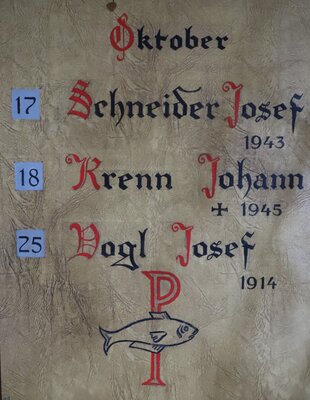 Oktober
17 Schneider Josef
1943
18 Krenn Johann
✝ 1945
25 Vogl Josef
1914
P
I